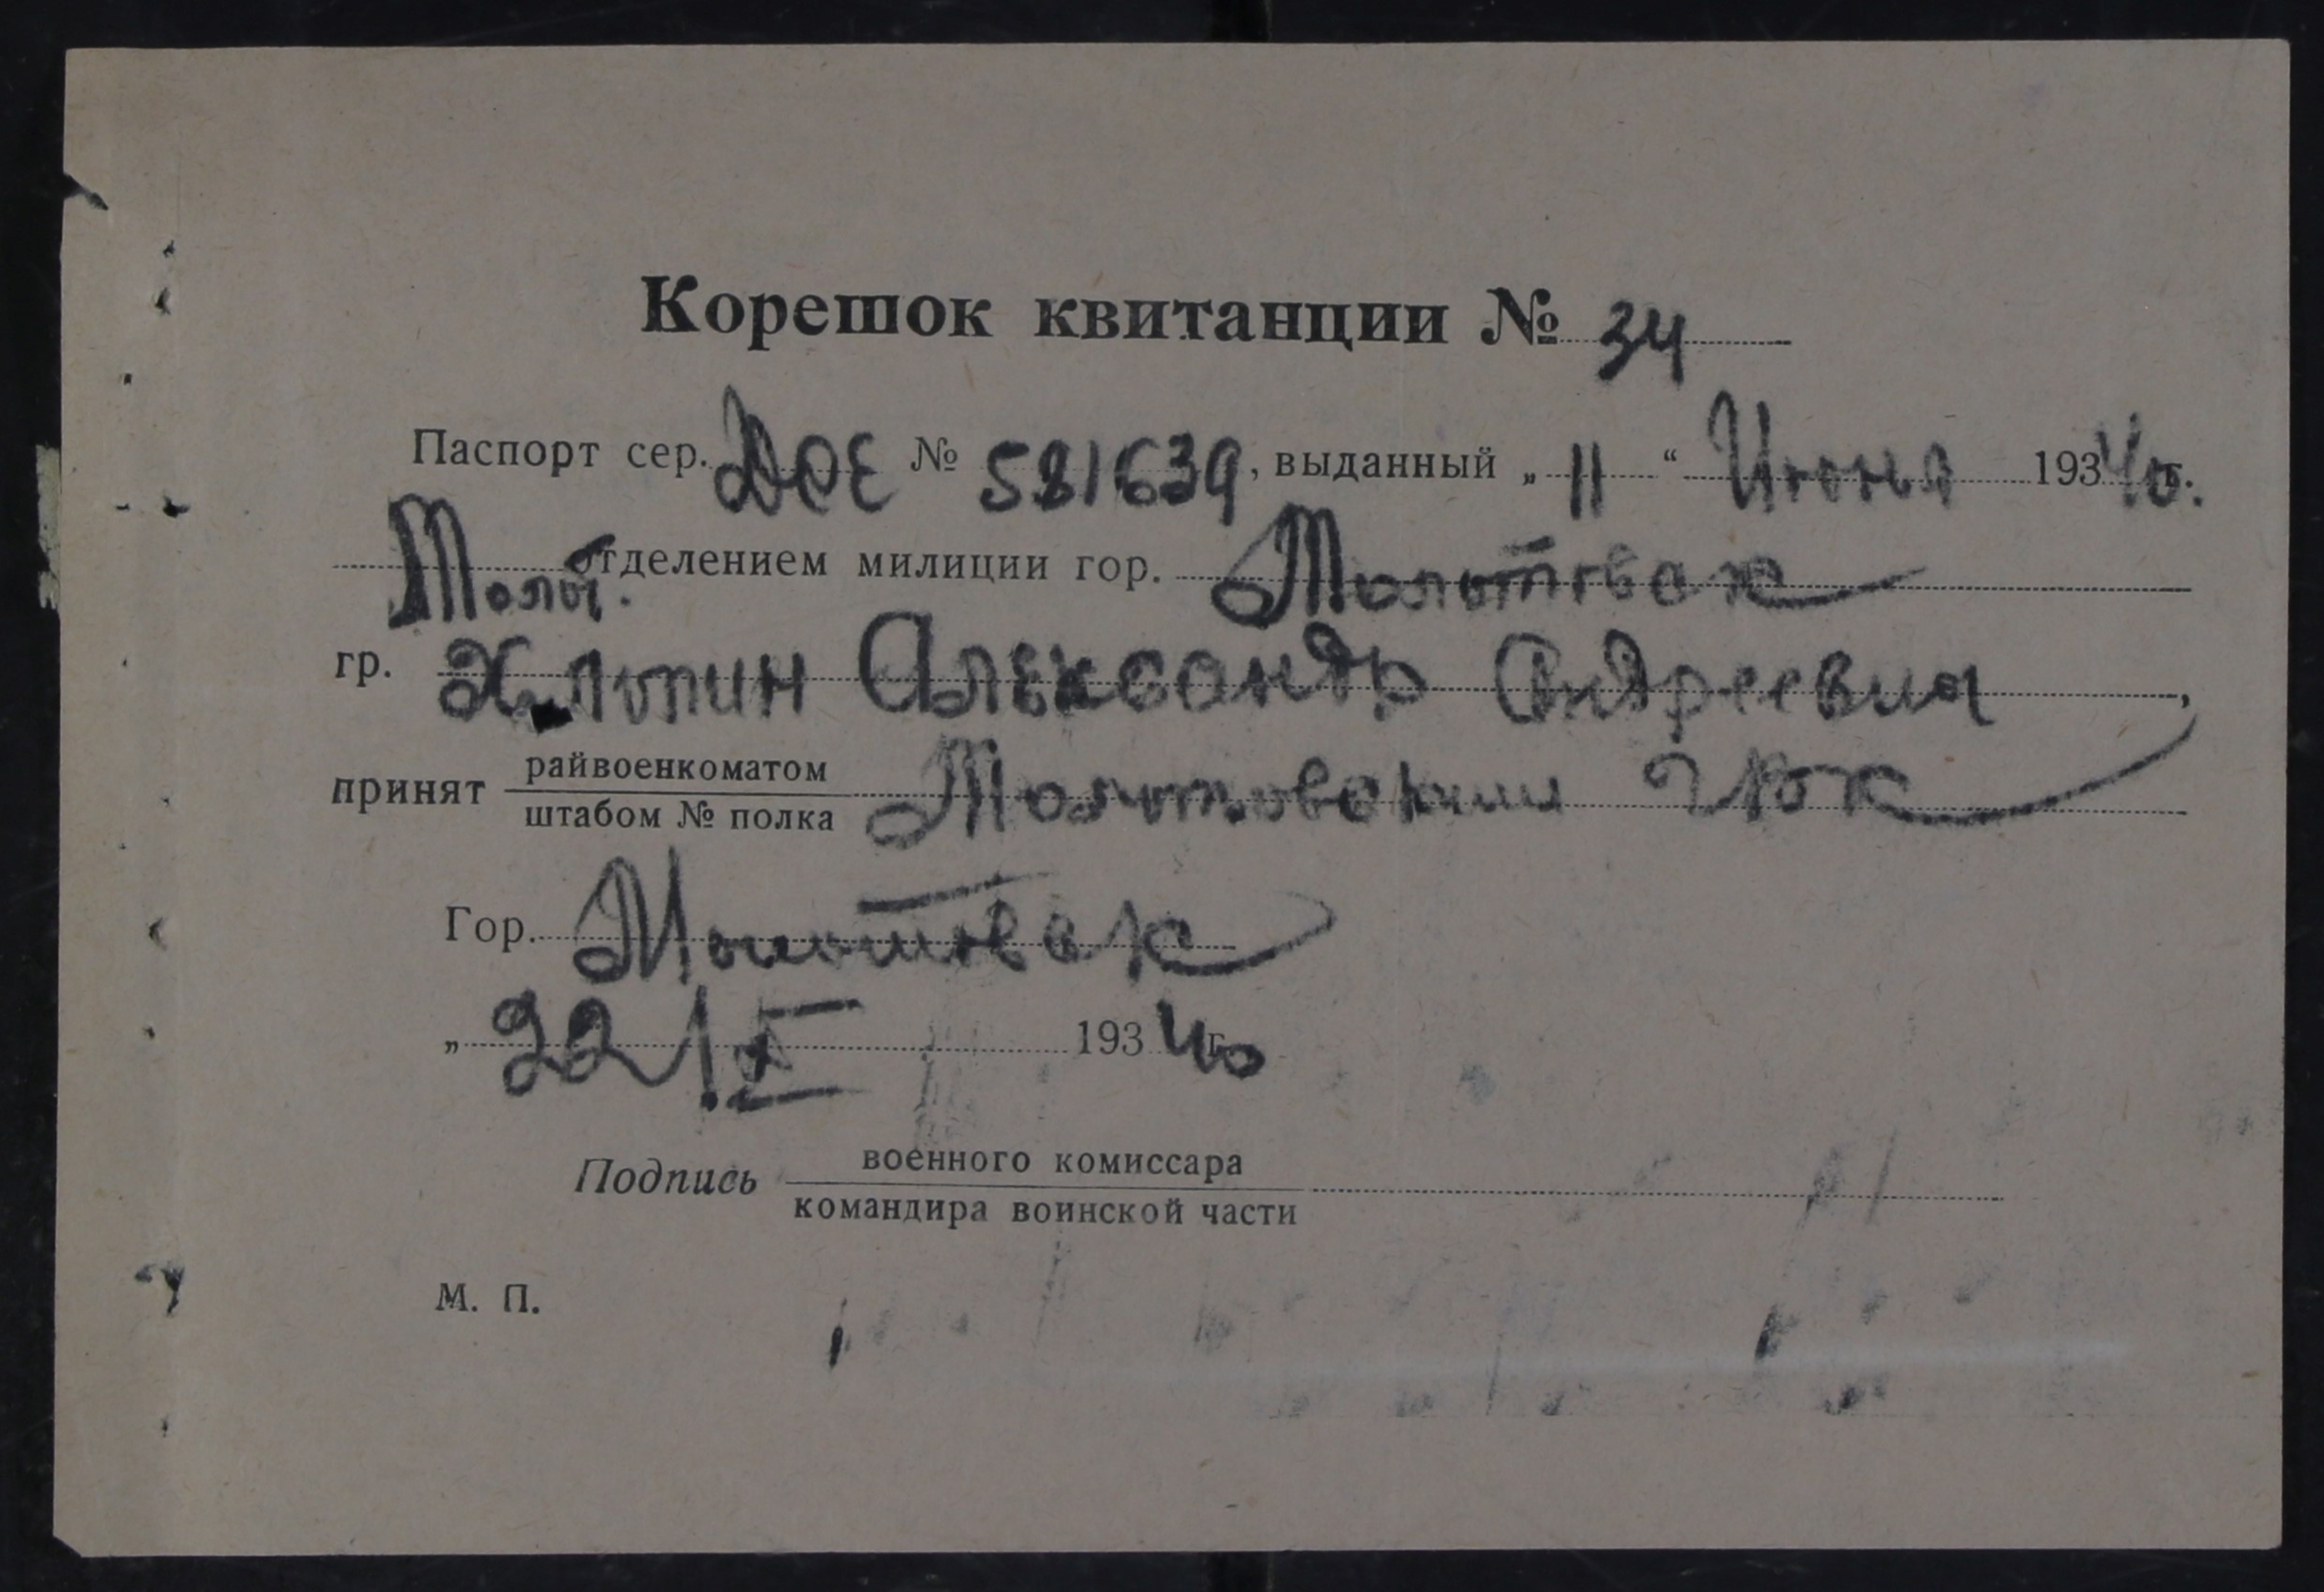 Корешок квитанции № 34
Паспорт сер. ДОЕ № 581639, выданный „ 11 “ Июня 1940 г.
Молот. отделением милиции гор. Молотовск
гр. Хлопин Александр Андреевич,
принят райвоенкоматом
штабом № полка Молотовским ГВК
Гор. Молотовск
„ 22/X 1940 г.
Подпись военного комиссара
командира воинской части
М. П.